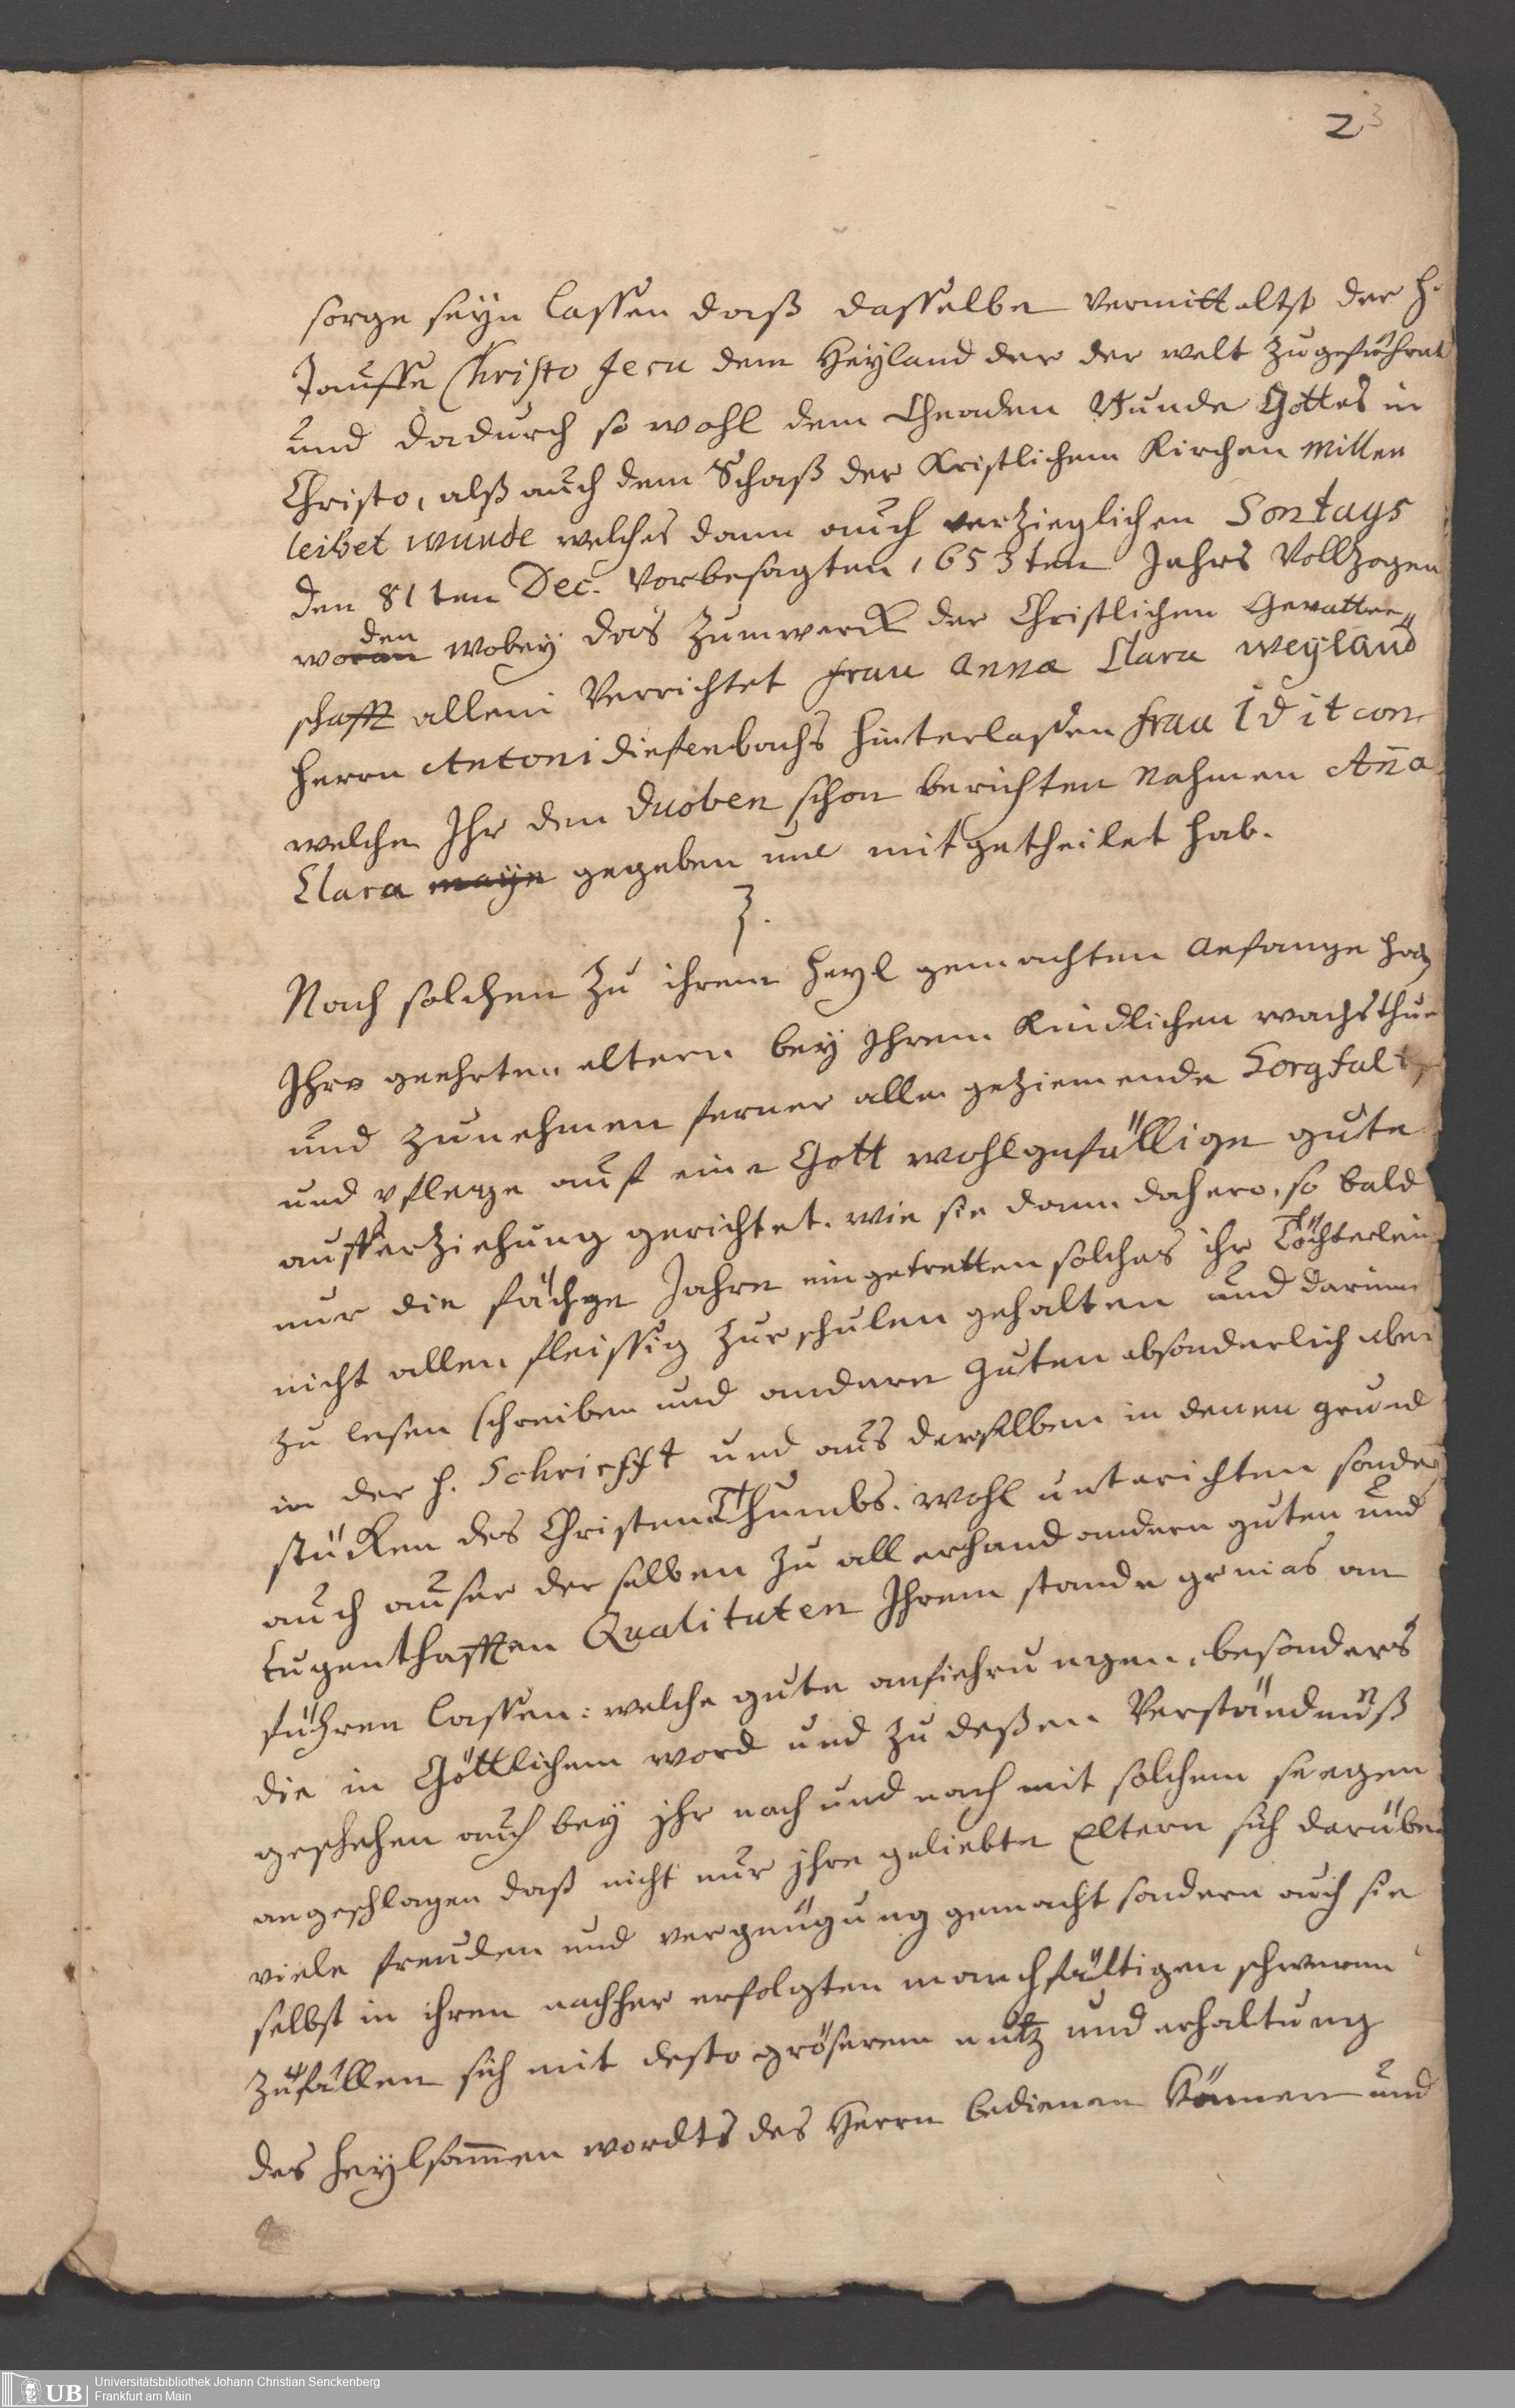 2 3
sorge seyn lassen daß dasselbe vermittelst der h.
Tauffe Christo Jesu dem Heyland der der welt zugeführet
und dadurch so wohl dem Gnaden Bunde Gottes in
Christo, alß auch dem Schoß der Kristlichem Kirchen willen
leibet wunde welches dann auch verzieglichen Sontags
den 81ten Dec. vorbesagten 1653ten Jahrs vollzogen
den
woran wobey das zumwerck der Christlichen Gevatter„
schafft allein verrichtet frau Anna Clara weyland
Herrn Antoni diefenbachs hinterlaßen frau Iditcon
welche Ihr den duoben schon berichten Nahmen Anna
Clara maije gegeben und mitgetheilet hab.
3.
Nach solchen zu ihrem Heyl gemachten anfange hab
Ihre geehrten eltern bey Ihrem Kindlichen wachsthum
und zunehmen ferner alle geziemende Sorgfalt
und pflege auf eine Gott wohlgefällige gute
aufferziehung gerichtet. wie sie dann dahero, so bald
nur die fähge Jahre eingetretten solches ihr Töchterlein
nicht allen fleissig zur schulen gehalten und darinne
zu lesen schreiben und andern guten absonderlich aber
in der h. Schriefft und aus derselben in denen grund
stücken des ChristenThumbs. wohl unterichten sonder
auch auser derselben zu allerhand andern guten und
tugenthafften Qualituten Ihrem stande gemäs an
führen lassen: welche gute anfiehrungen, besonders
die in Göttlichem word und zu deßen Verständnüß
geschehen auch bey ihr nach und nach mit solchem seegen
angeschlagen daß nicht nur ihre geliebte Eltern sich darüber
viele freuden und vergnügung gemacht sondern auch sie
selbst in ihren nachher erfolgten manchfältigen schweren
zufällen sich mit desto gröserem nutz und erhaltung
des heylsamen wordts des Herrn bedienen können und
UB Universitätsbibliothek Johann Christian Senckenberg
Frankfurt am Main